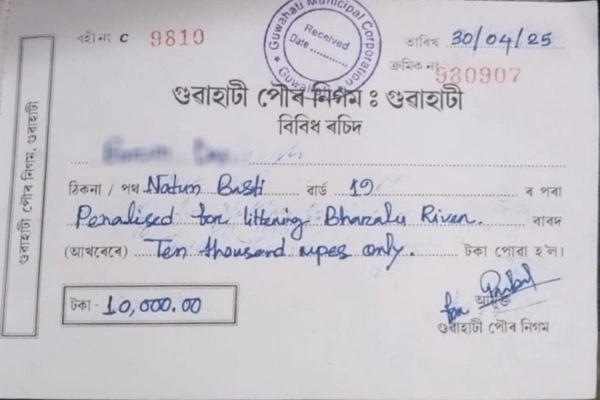 Guwahati Municipal Corporation
Received
Date ............
Guwahati
বহী নং C 9810
তাৰিখ 30/04/25
ক্ৰমিক নং 980907
গুৱাহাটী পৌৰ নিগম, গুৱাহাটী
গুৱাহাটী পৌৰ নিগম : গুৱাহাটী
বিবিধ ৰচিদ
ঠিকনা / পথ Natun Basti ৱাৰ্ড 19 ৰ পৰা
Penalised for littering Bharalu River. বাবদ
(আখৰেৰে) Ten thousand rupes only. টকা পোৱা হ'ল।
টকা - 10,000.00
for
আয়ুক্ত
গুৱাহাটী পৌৰ নিগম